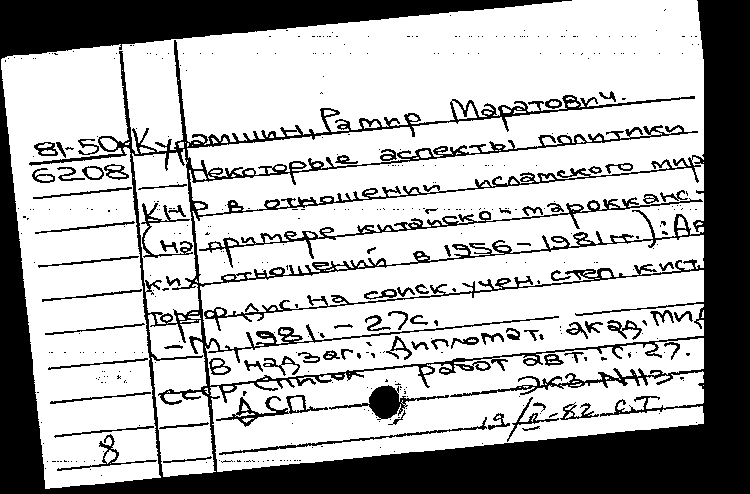 81-50к Курамшин, Рамир Маратович.
6208 Некоторые аспекты политики
КНР в отношении исламского мир
(на примере китайско-марокканс-
ких отношений в 1956-1981 гг.): Ав
тореф. дис. на соиск. учен. степ. к.ист.
- М., 1981. - 27с.
В надзаг.: Дипломат. акад. МИД
СССР. Список работ авт.: с. 27.
ДСП. Экз. N113.
8 19/II-82 С.Т.